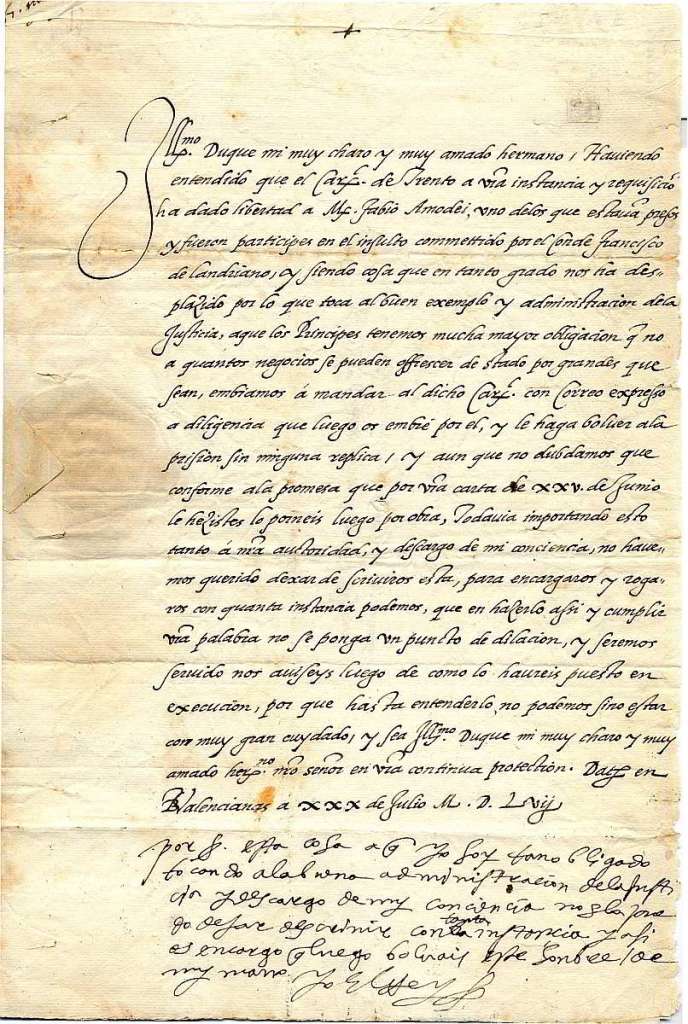 Ill.mo Duque mi muy charo y muy amado hermano, Haviendo
entendido que el Car.l de Trento a vr̃a instancia y requisiciõ
ha dado libertad a M. Fabio Amodei, uno delos que estavã presos
y fueron participes en el insulto commettido por el Conde Francisco
de landriano, y siendo cosa que en tanto grado nos ha des-
plazido por lo que toca al buen exemplo y administracion dela
Justicia, aque los Principes tenemos mucha mayor obligacion q̃ no
a quantos negocios se pueden offrescer de stado por grandes que
sean, embiamos á mandar al dicho Car.l con Correo expresso
a diligencia que luego os embie por el, y le haga bolver ala
prision sin ninguna replica, y aun que no dubdamos que
conforme ala promesa que por vr̃a carta de xxv. de Junio
le hezistes lo porneis luego por obra, Todavia importando esto
tanto á nr̃a autoridad, y descargo de mi conciencia, no have-
mos querido dexar de scriviros esta, para encargaros y roga-
ros con quanta instancia podemos, que en hazerlo assi y cumplir
vr̃a palabra no se ponga un puncto de dilacion, y seremos
servido nos aviseys luego de como lo havreis puesto en
execucion, por que hasta entenderlo no podemos sino estar
con muy gran cuydado, y sea Ill.mo Duque mi muy charo y muy
amado her.no nr̃o señor en vr̃a continua protection. Dat. en
Valencianas a xxx de Julio M. D. Lvij
por s. esta cosa a q̃ yo soy tan obligado
tocando ala buena administracion dela justi
cia y descargo de my conciencia no
de escrivir con tanta instancia y asi
os encargo q̃ luego bolvais este honbre
my mano Yo El Rey